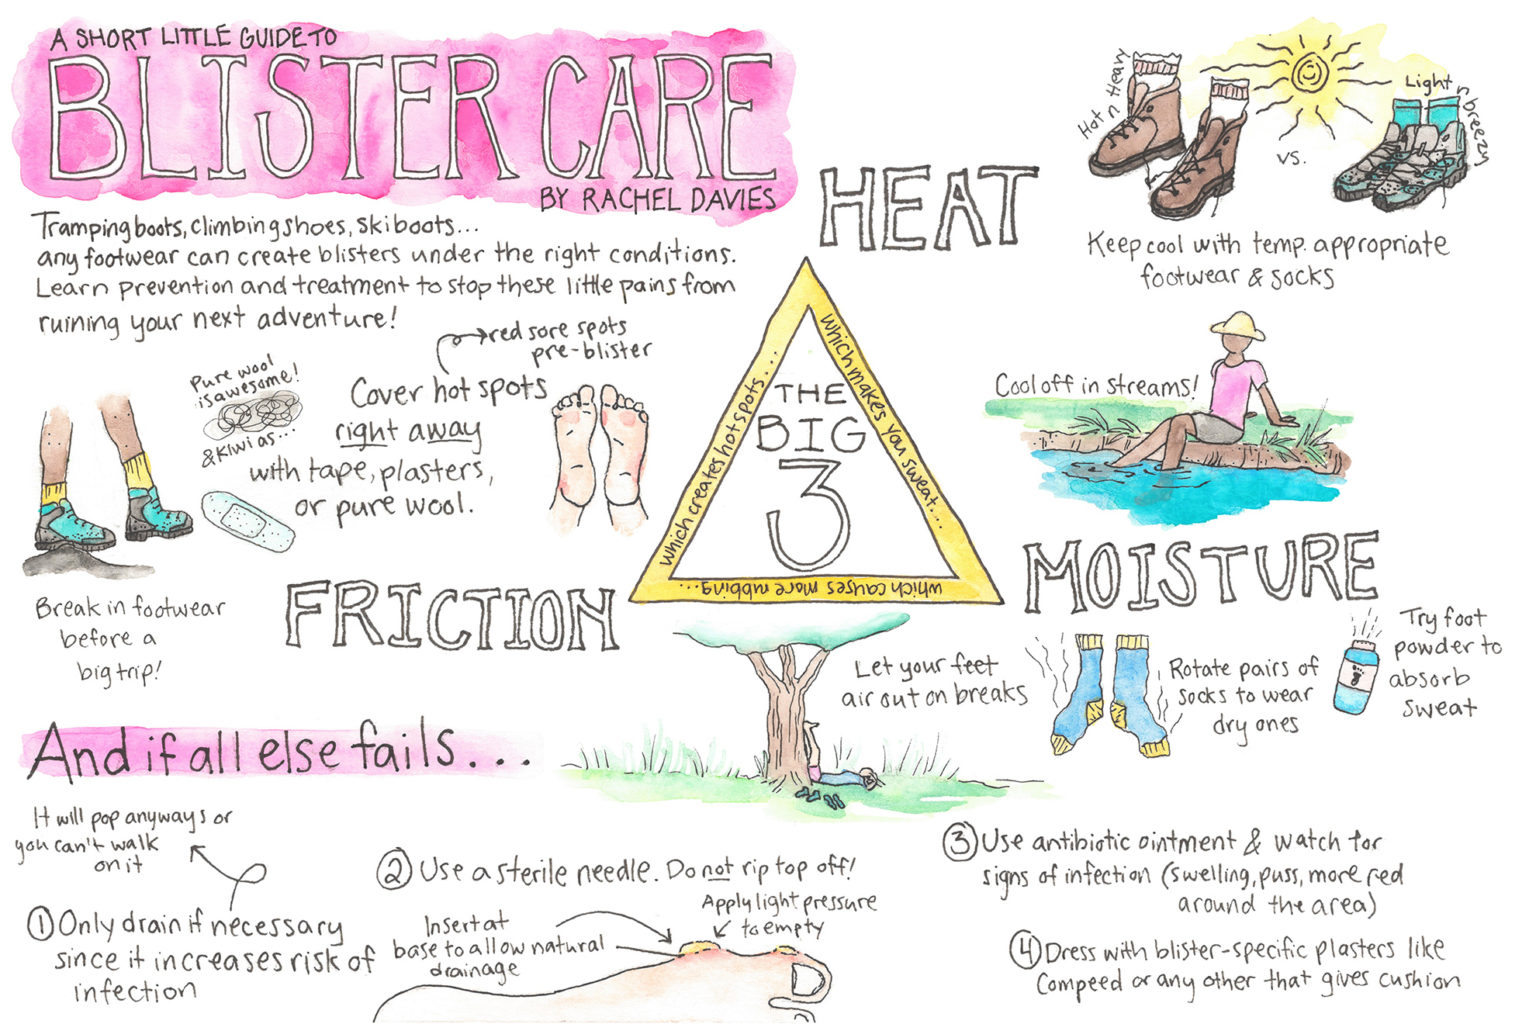 A SHORT LITTLE GUIDE TO
BLISTER CARE
BY RACHEL DAVIES
Tramping boots, climbing shoes, ski boots...
any footwear can create blisters under the right conditions.
Learn prevention and treatment to stop these little pains from
ruining your next adventure!
HEAT
Hot n Heavy
vs.
Light n breezy
Keep cool with temp. appropriate
footwear & socks
Cool off in streams!
THE
BIG
3
which makes you sweat...
which causes more rubbing...
which creates hot spots...
red sore spots
pre-blister
Cover hot spots
right away
with tape, plasters,
or pure wool.
Pure wool
is awesome!
& Kiwi as...
Break in footwear
before a
big trip!
FRICTION
MOISTURE
Let your feet
air out on breaks
Rotate pairs of
socks to wear
dry ones
Try foot
powder to
absorb
sweat
And if all else fails...
It will pop anyways or
you can't walk
on it
1 Only drain if necessary
since it increases risk of
infection
2 Use a sterile needle. Do not rip top off!
Insert at
base to allow natural
drainage
Apply light pressure
to empty
3 Use antibiotic ointment & watch for
signs of infection (swelling, puss, more red
around the area)
4 Dress with blister-specific plasters like
Compeed or any other that gives cushion